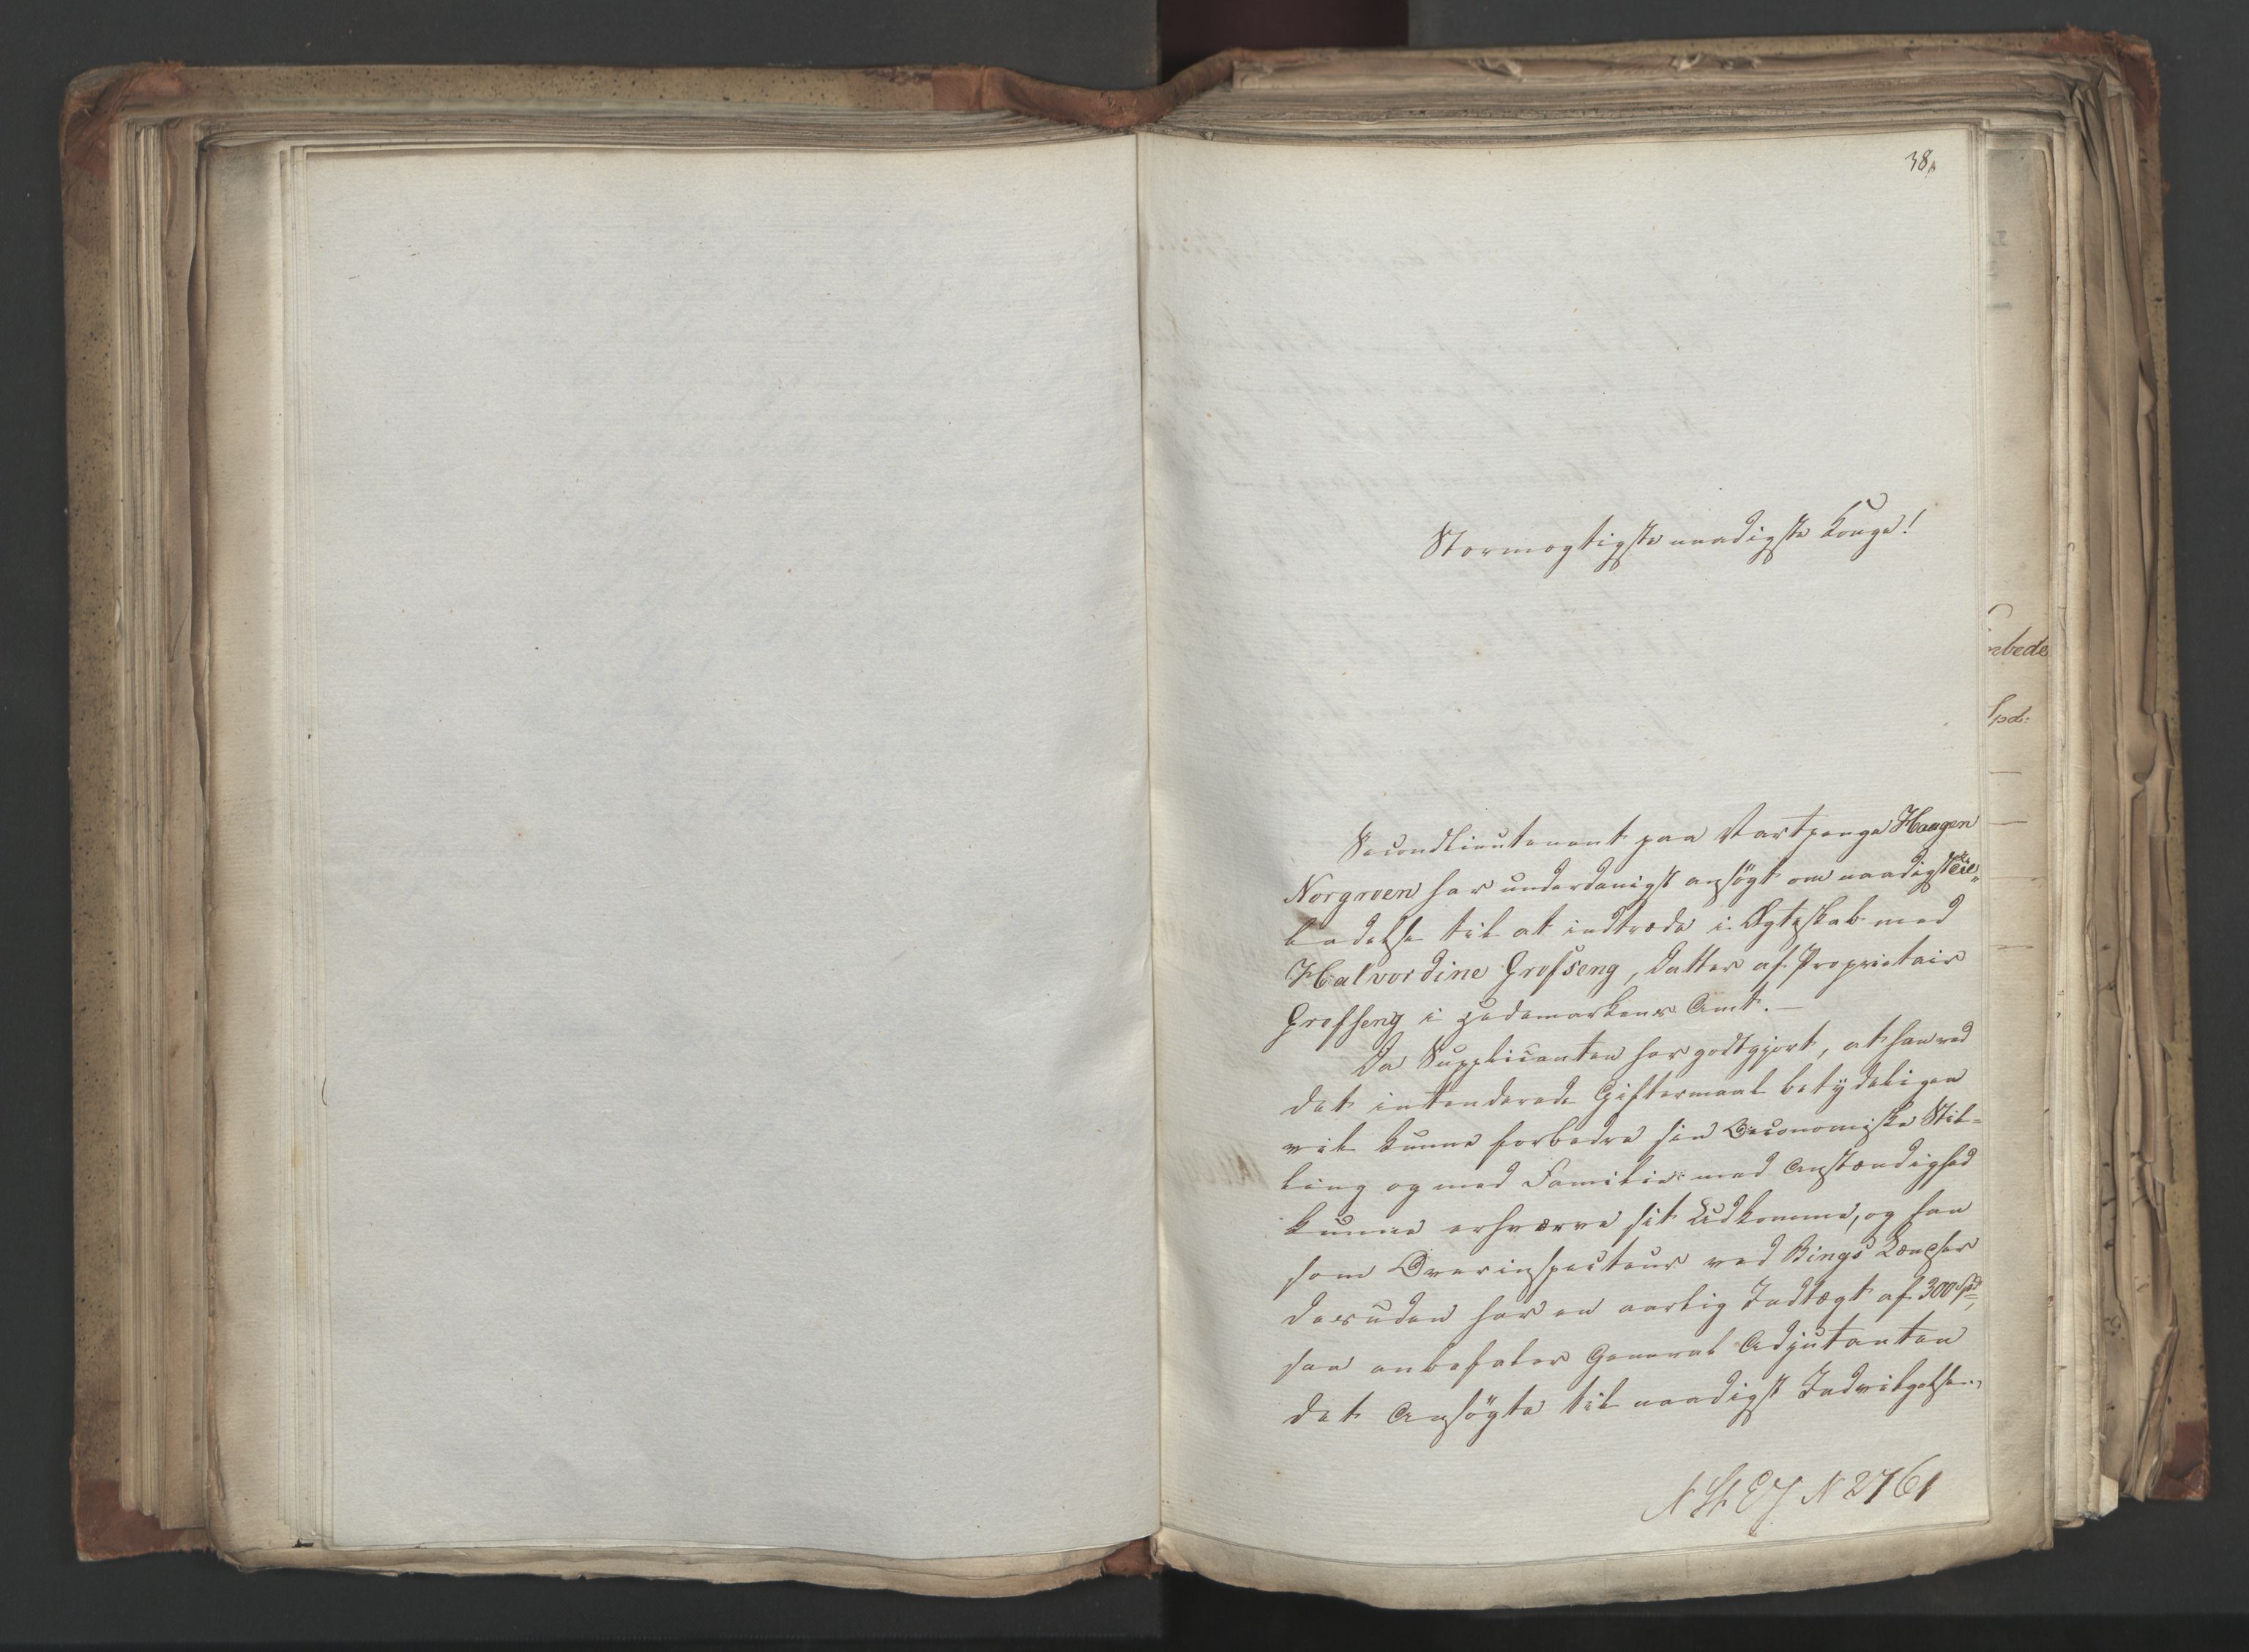 38,
Stormægtigste naadigste Konge!
Secondlieutenant paa Vartpenge Haagen
Norgroen har underdanigst ansögt om naadigste Til„
ladelse til at indtræde i Ægteskab med
Halvordine Grofseng, Datter af Proprietair
Grofseng i Hedemarkens Amt. —
Da Supplicanten har godtgjort, at han ved
det intenderede Giftermaal betydeligen
vil kunne forbedre sin Oeconomiske Stil=
ling og med Familie med Anstændighed
kunne erhverve sit Udkomme, og han
som Overinspecteur ved Bings Lænser
desuden har en aarlig Indtægt af 300 Spd,
saa anbefaler General Adjutanten
det Ansögte til naadigst Indvilgelse.
N 2761
rbede
Spd: